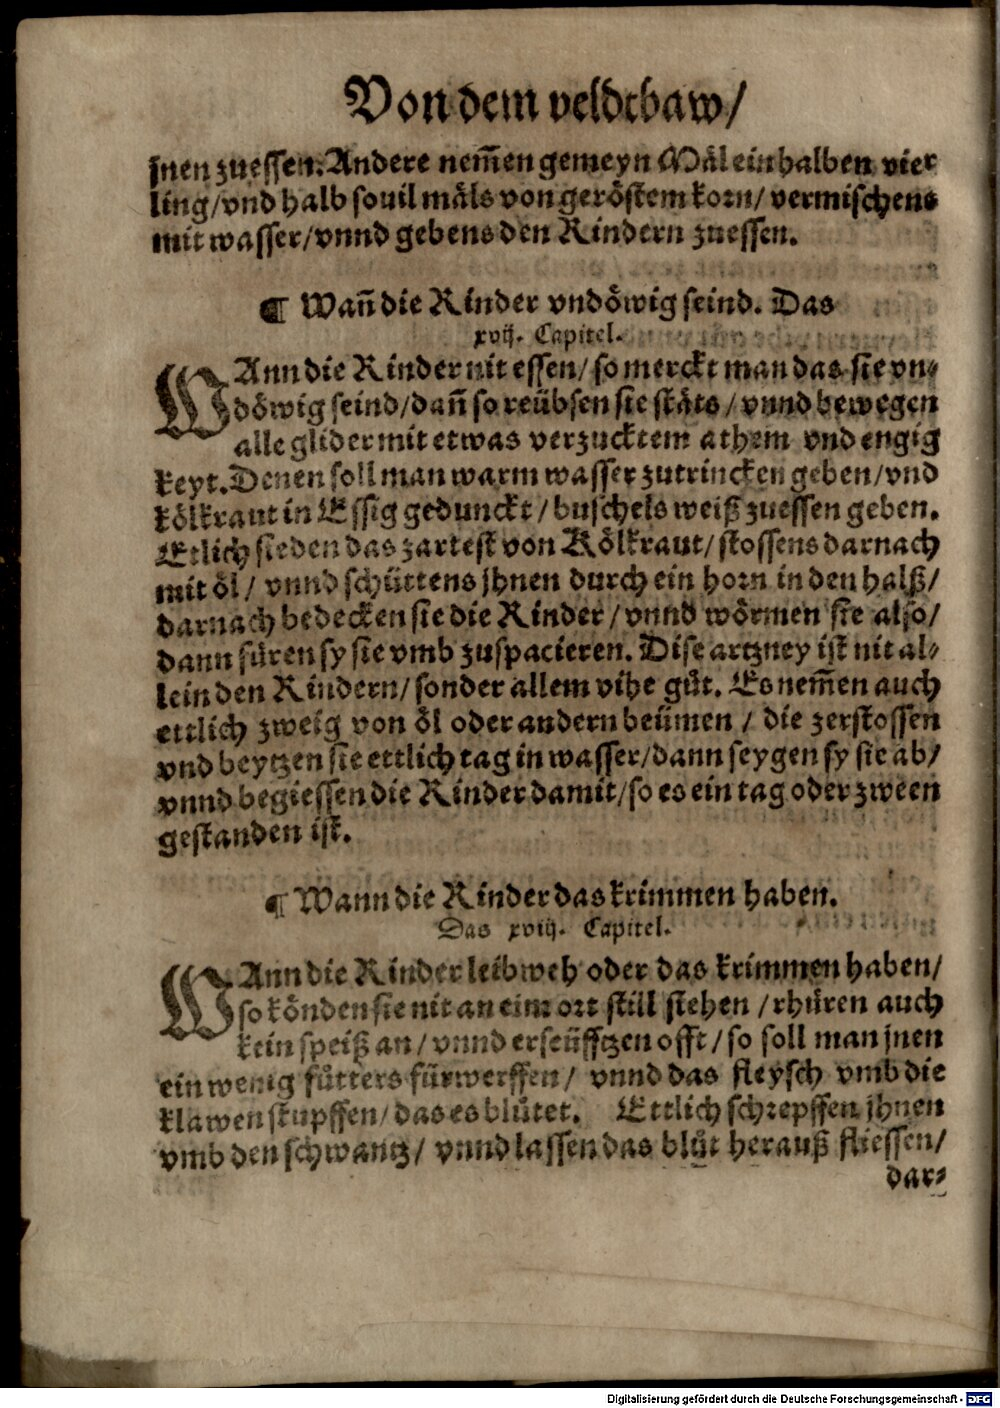 Von dem veldtbaw/
jnen zuessen. Andere nem̃en gemeyn Mäl ein halben vier-
ling/ vnd halb souil mäls von geröstem korn/ vermischens
mit wasser/ vnnd gebens den Rindern zuessen.
¶ Wañ die Rinder vndöwig seind. Das
xvij. Capitel.
WAnn die Rinder nit essen/ so merckt man das sie vn-
döwig seind/ dañ so reübsen sie stäts/ vnnd bewegen
alle glider mit etwas verzucktem athem vnd engig
keyt. Denen soll man warm wasser zutrincken geben/ vnd
kölkraut in Essig gedunckt/ buschels weiß zuessen geben.
Etlich sieden das zartest von Kölkraut/ stossens darnach
mit öl/ vnnd schüttens jhnen durch ein horn in den halß/
darnach bedecken sie die Rinder/ vnnd wörmen sie also/
dann füren sy sie vmb zuspacieren. Dise artzney ist nit al-
lein den Rindern/ sonder allem vihe güt. Es nem̃en auch
ettlich zweig von öl oder andern beümen/ die zerstossen
vnd beytzen sie ettlich tag in wasser/ dann seygen sy sie ab/
vnnd begiessen die Rinder damit/ so es ein tag oder zween
gestanden ist.
¶ Wann die Rinder das krimmen haben.
Das xviij. Capitel.
WAnn die Rinder leibweh oder das krimmen haben/
so könden sie nit an eim ort still stehen/ rhüren auch
kein speiß an/ vnnd erseüfftzen offt/ so soll man jnen
ein wenig fütters fürwerffen/ vnnd das fleysch vmb die
klawen stupffen/ das es blütet. Ettlich schrepffen jhnen
vmb den schwantz/ vnnd lassen das blüt herauß fliessen/
dar-
Digitalisierung gefördert durch die Deutsche Forschungsgemeinschaft - DFG